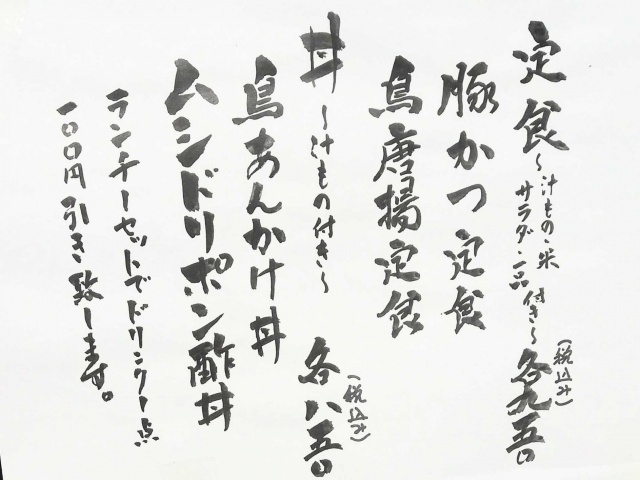 定食〜汁もの・米
サラダ・一品付き〜
各九五〇
(税込み)
豚かつ定食
鳥唐揚定食
丼〜汁もの付き〜
各八五〇
(税込み)
鳥あんかけ丼
ムシドリポン酢丼
ランチーセットでドリンク一点
一〇〇円引き致します。